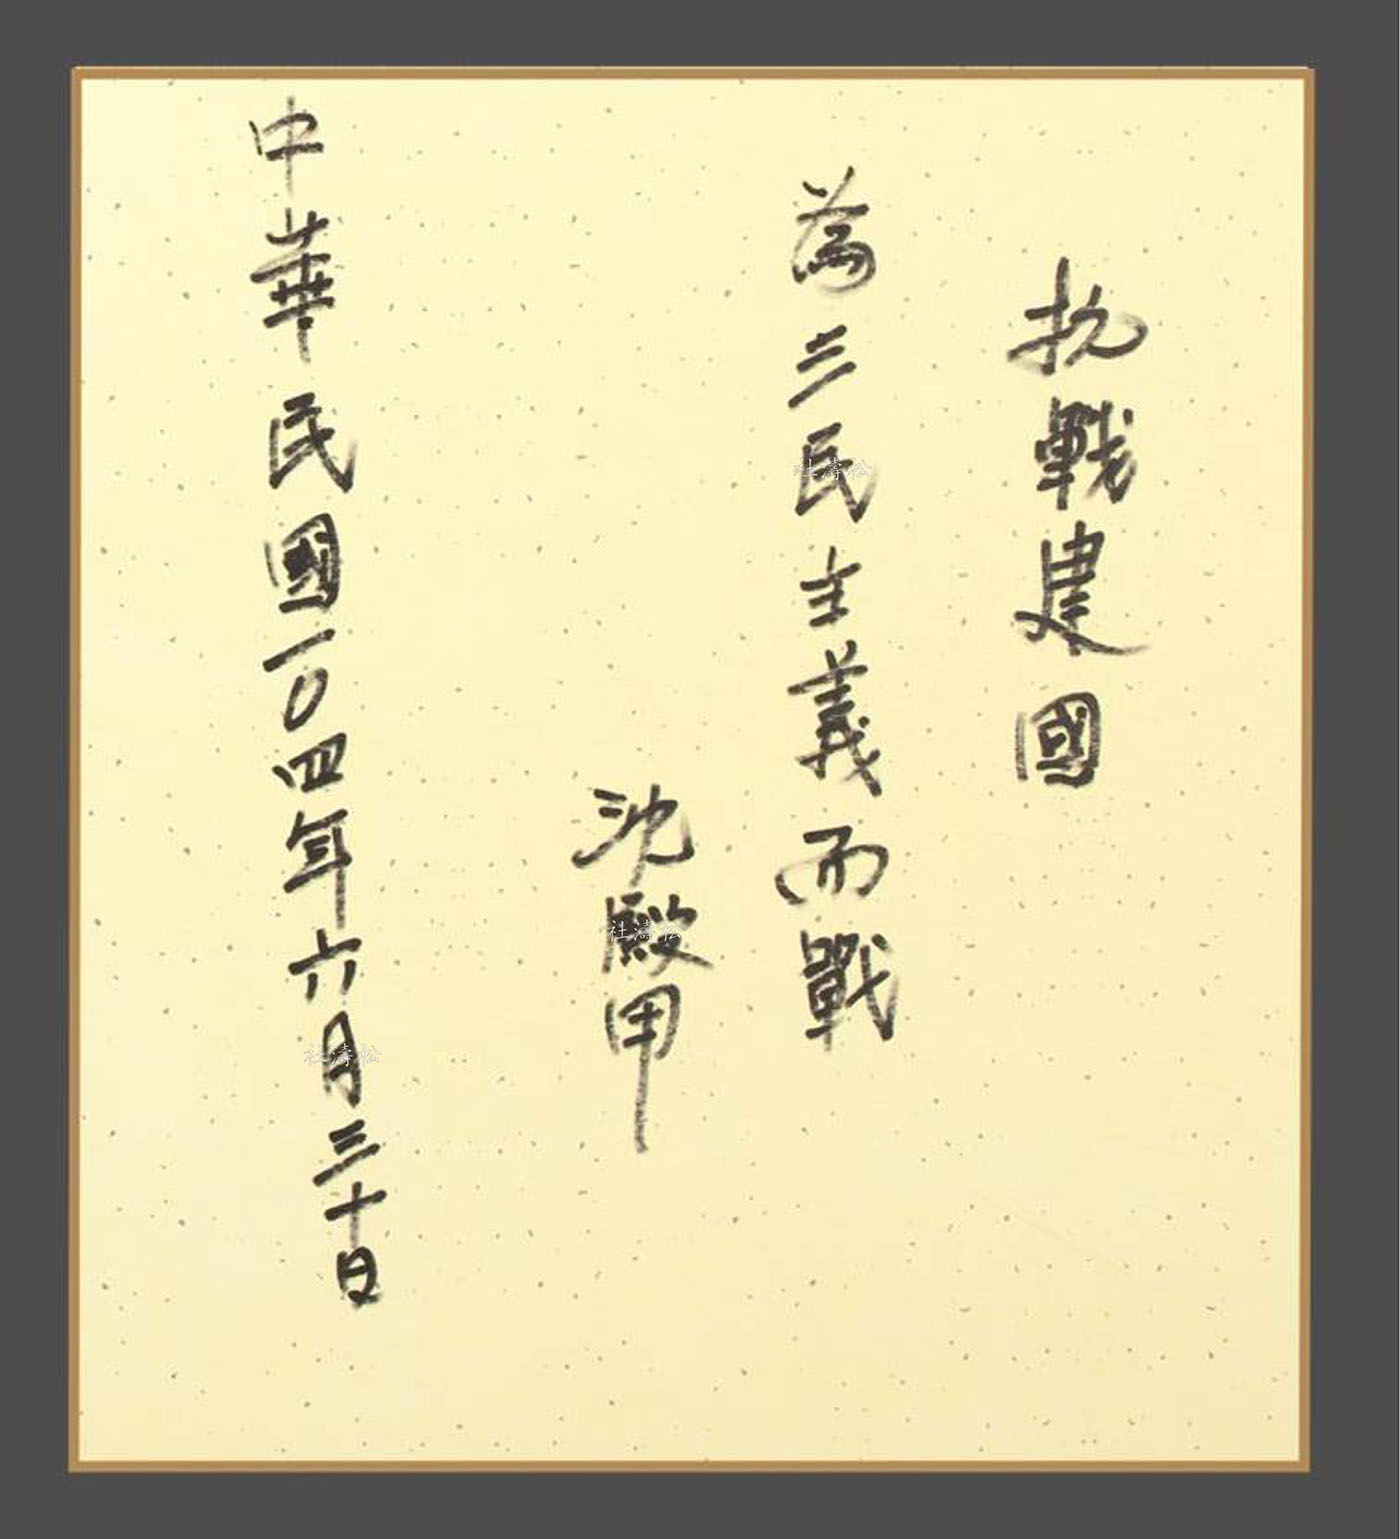 抗戰建國
為三民主義而戰
沈殿甲
中華民國一〇四年六月三十日
社濤松
社濤松
社濤松